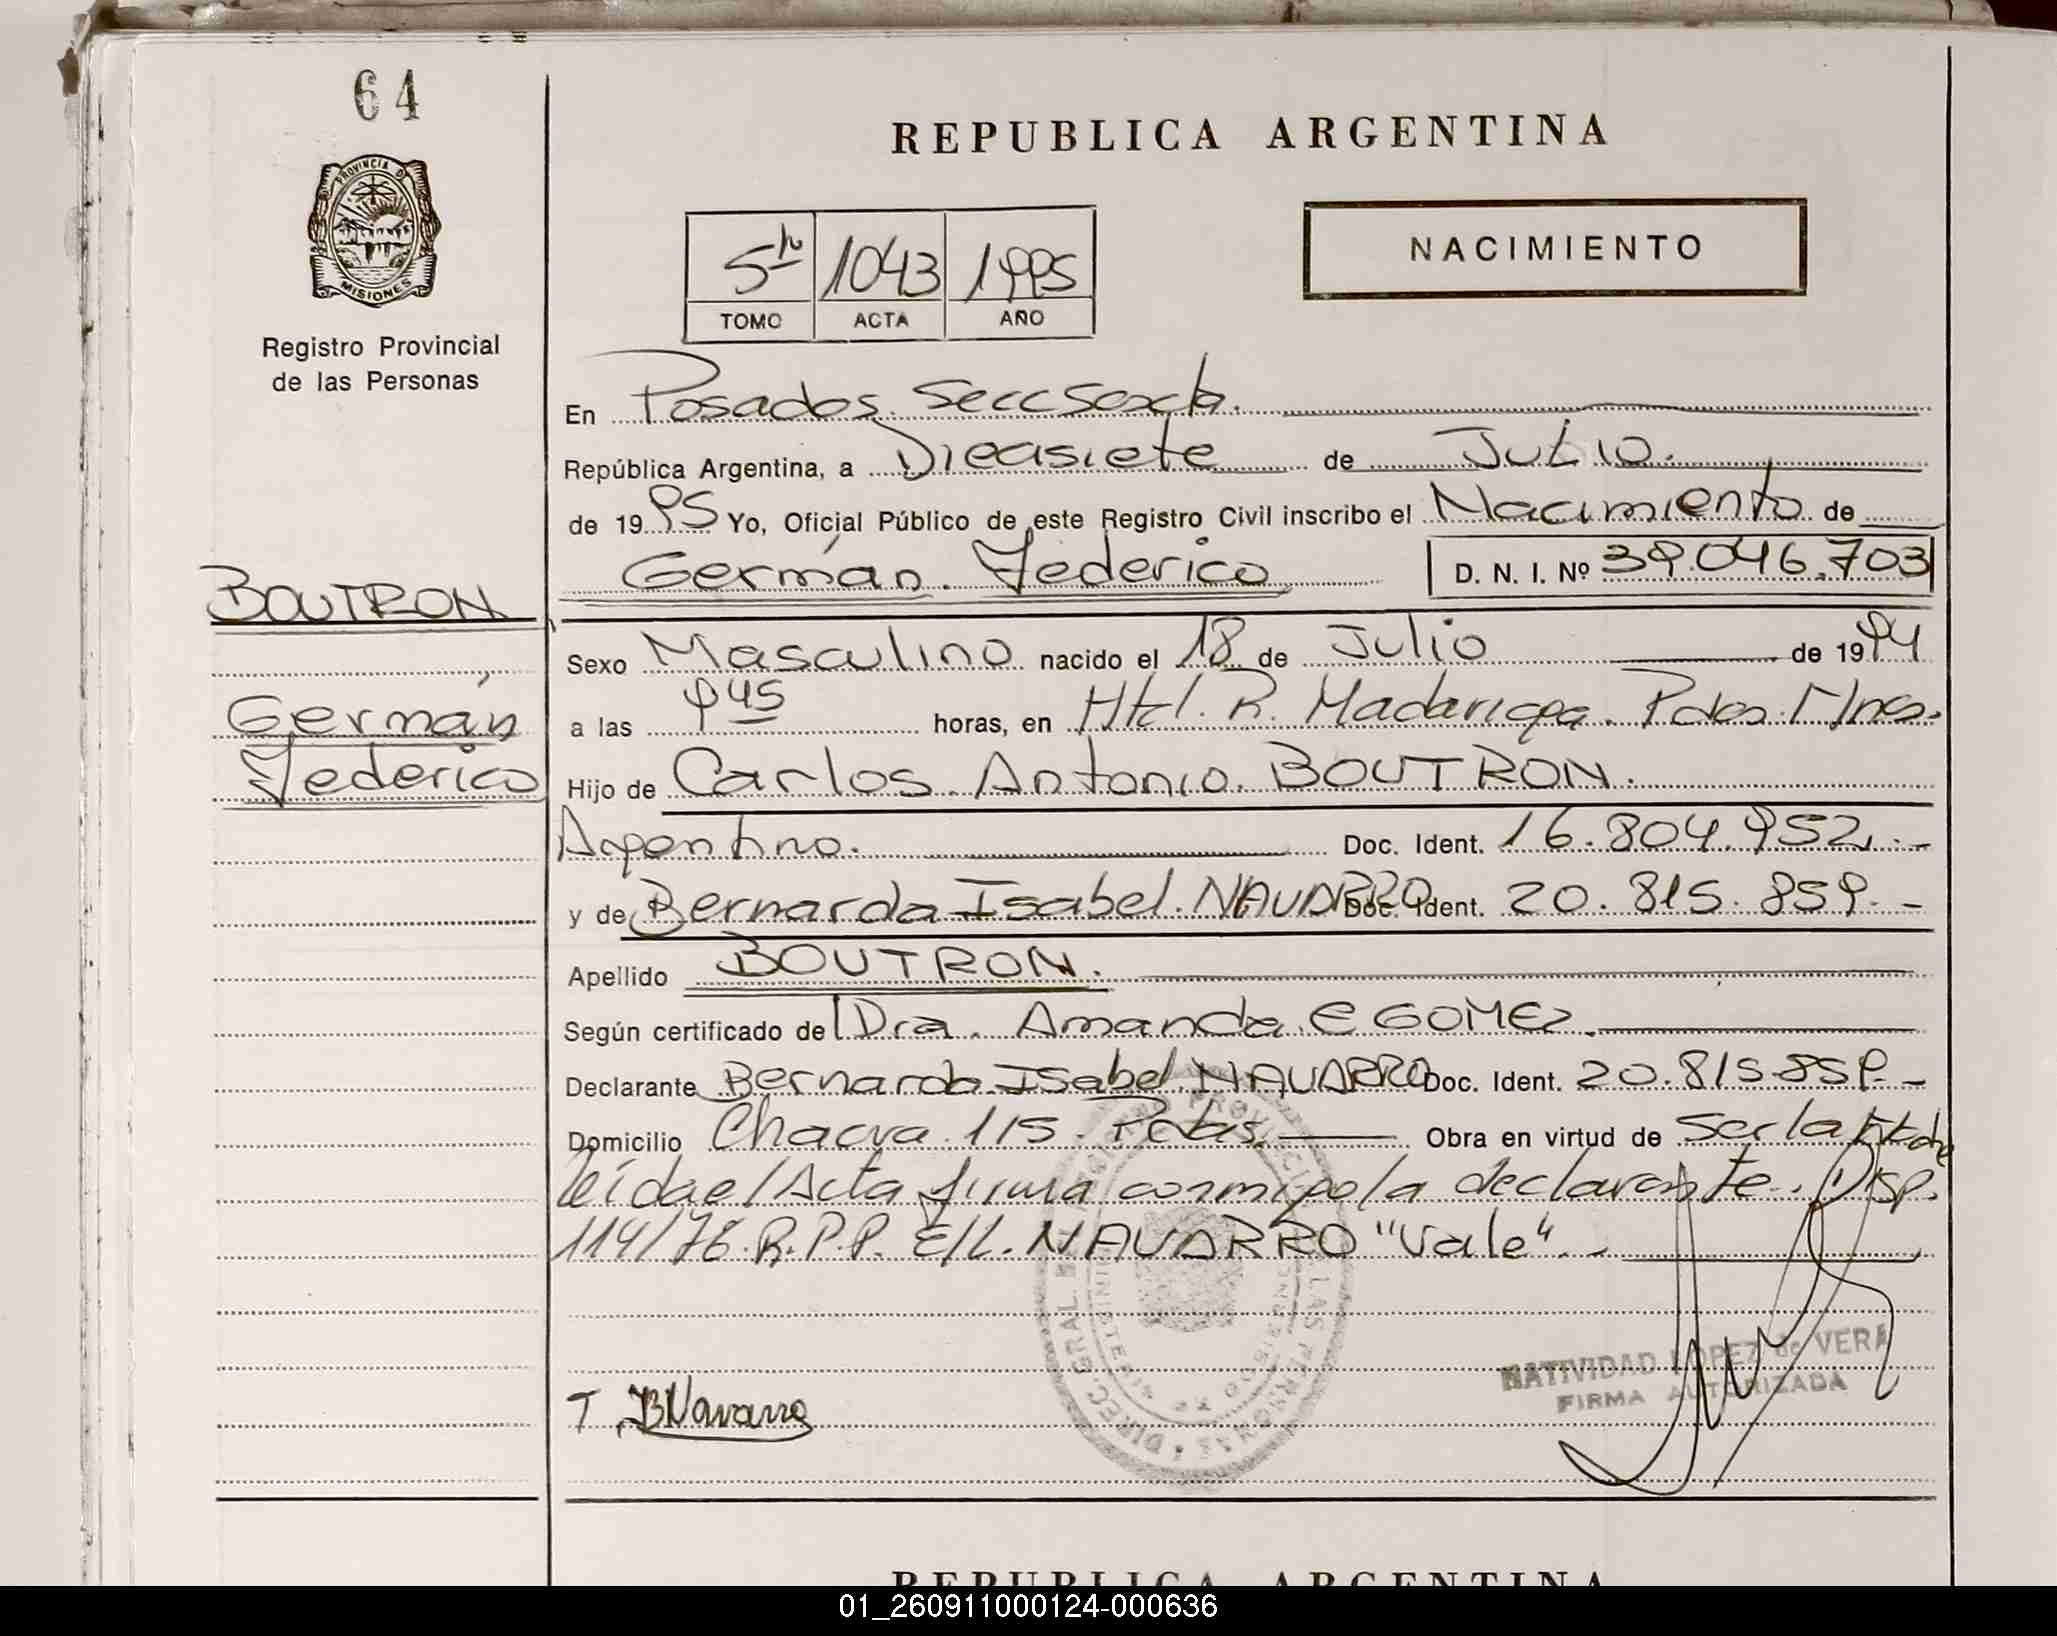 64
REPUBLICA ARGENTINA
PROVINCIA D
MISIONES
Registro Provincial
de las Personas
NACIMIENTO
5to 1043 1995
TOMO ACTA AÑO
En Posadas Secc Sexta.
República Argentina, a Diecisiete de Julio.
de 1995 Yo, Oficial Público de este Registro Civil inscribo el Nacimiento de
Germán Federico D. N. I. Nº 39.046.703
BOUTRON
Germán
Federico
Sexo Masculino nacido el 18 de Julio de 1994
a las 9 45 horas, en Htal. R. Madariaga. Pdas. Mnes.
Hijo de Carlos Antonio BOUTRON.
Argentino. Doc. Ident. 16.804.952.-
y de Bernarda Isabel NAVARRO Doc. Ident. 20.815.859.-
Apellido BOUTRON.
Según certificado de Dra. Amanda E GOMEZ.
Declarante Bernarda Isabel NAVARRO Doc. Ident. 20.815.859.-
Domicilio Chacra 115. Pdas. Obra en virtud de Ser la
leída e/Acta firma conmigo la declarante. Disp.
114/76. R.P.P. E/L. NAVARRO "Vale".-
NATIVIDAD LOPEZ de VERA
FIRMA AUTORIZADA
T. BNavarro
REPUBLICA ARGENTINA
01_260911000124-000636